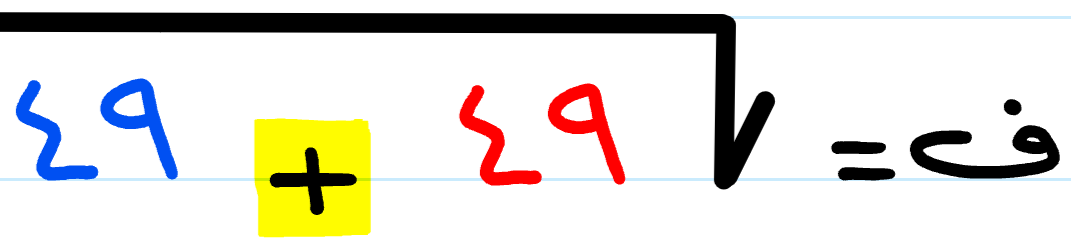 ف = √٤٩ + ٤٩